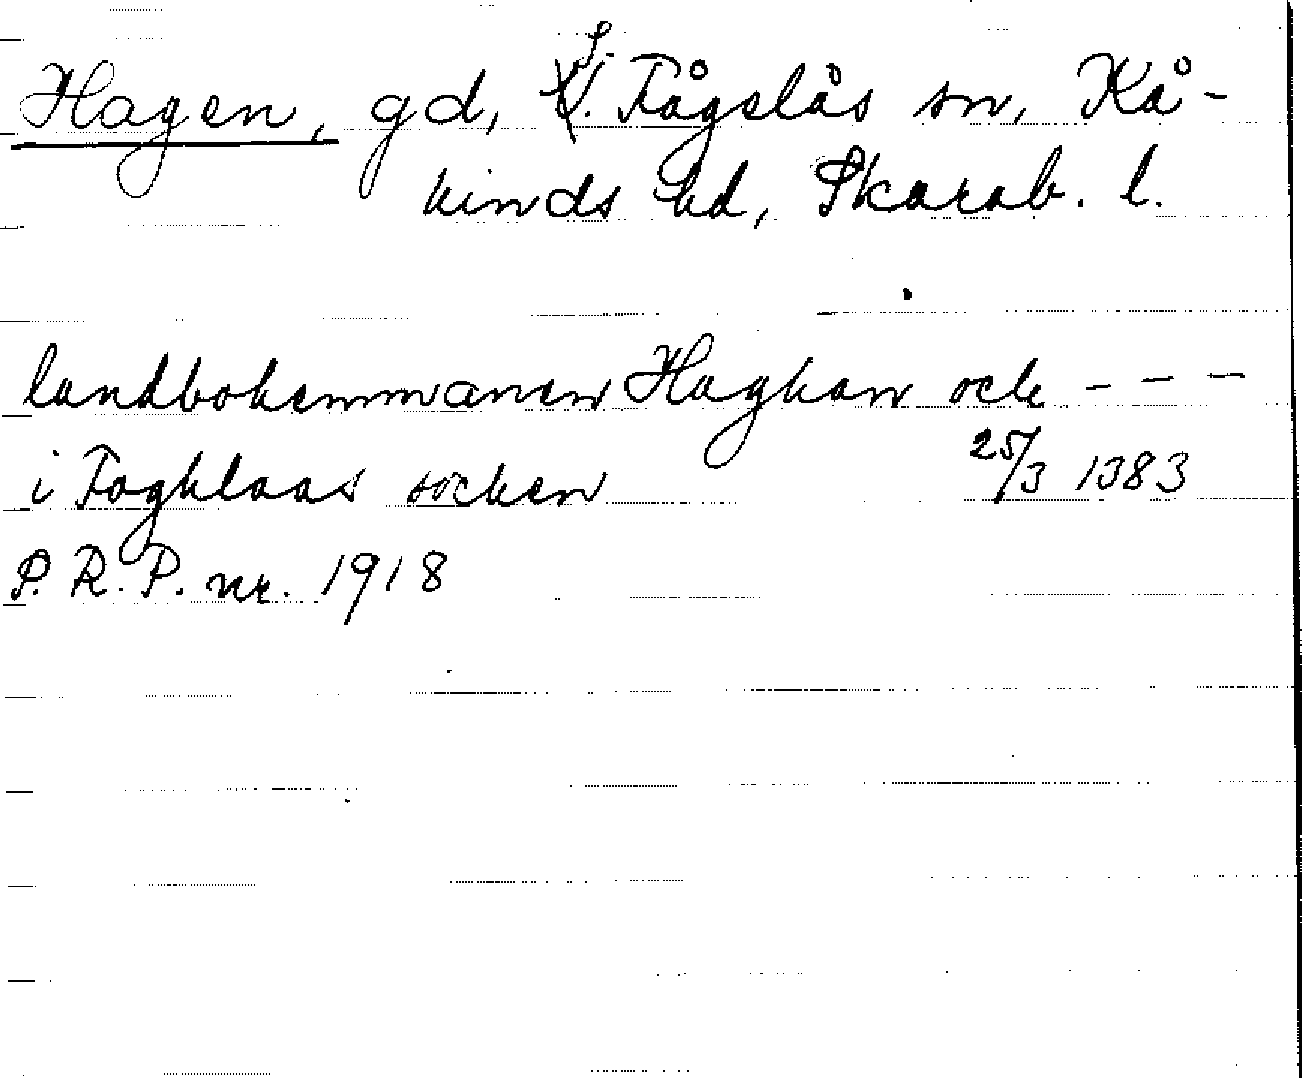 Hagen, gd, S. Fågelås sn, Kå-
kinds hd, Skarab. l.
landbohemmanen Haghan och - - -
i Foghlaas socken 25/3 1383
P. R. P. nr. 1918